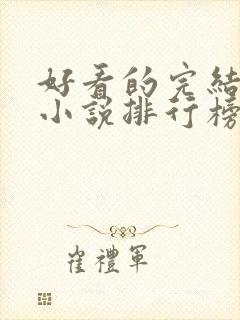 好看的完結
小說排行榜
崔禮軍